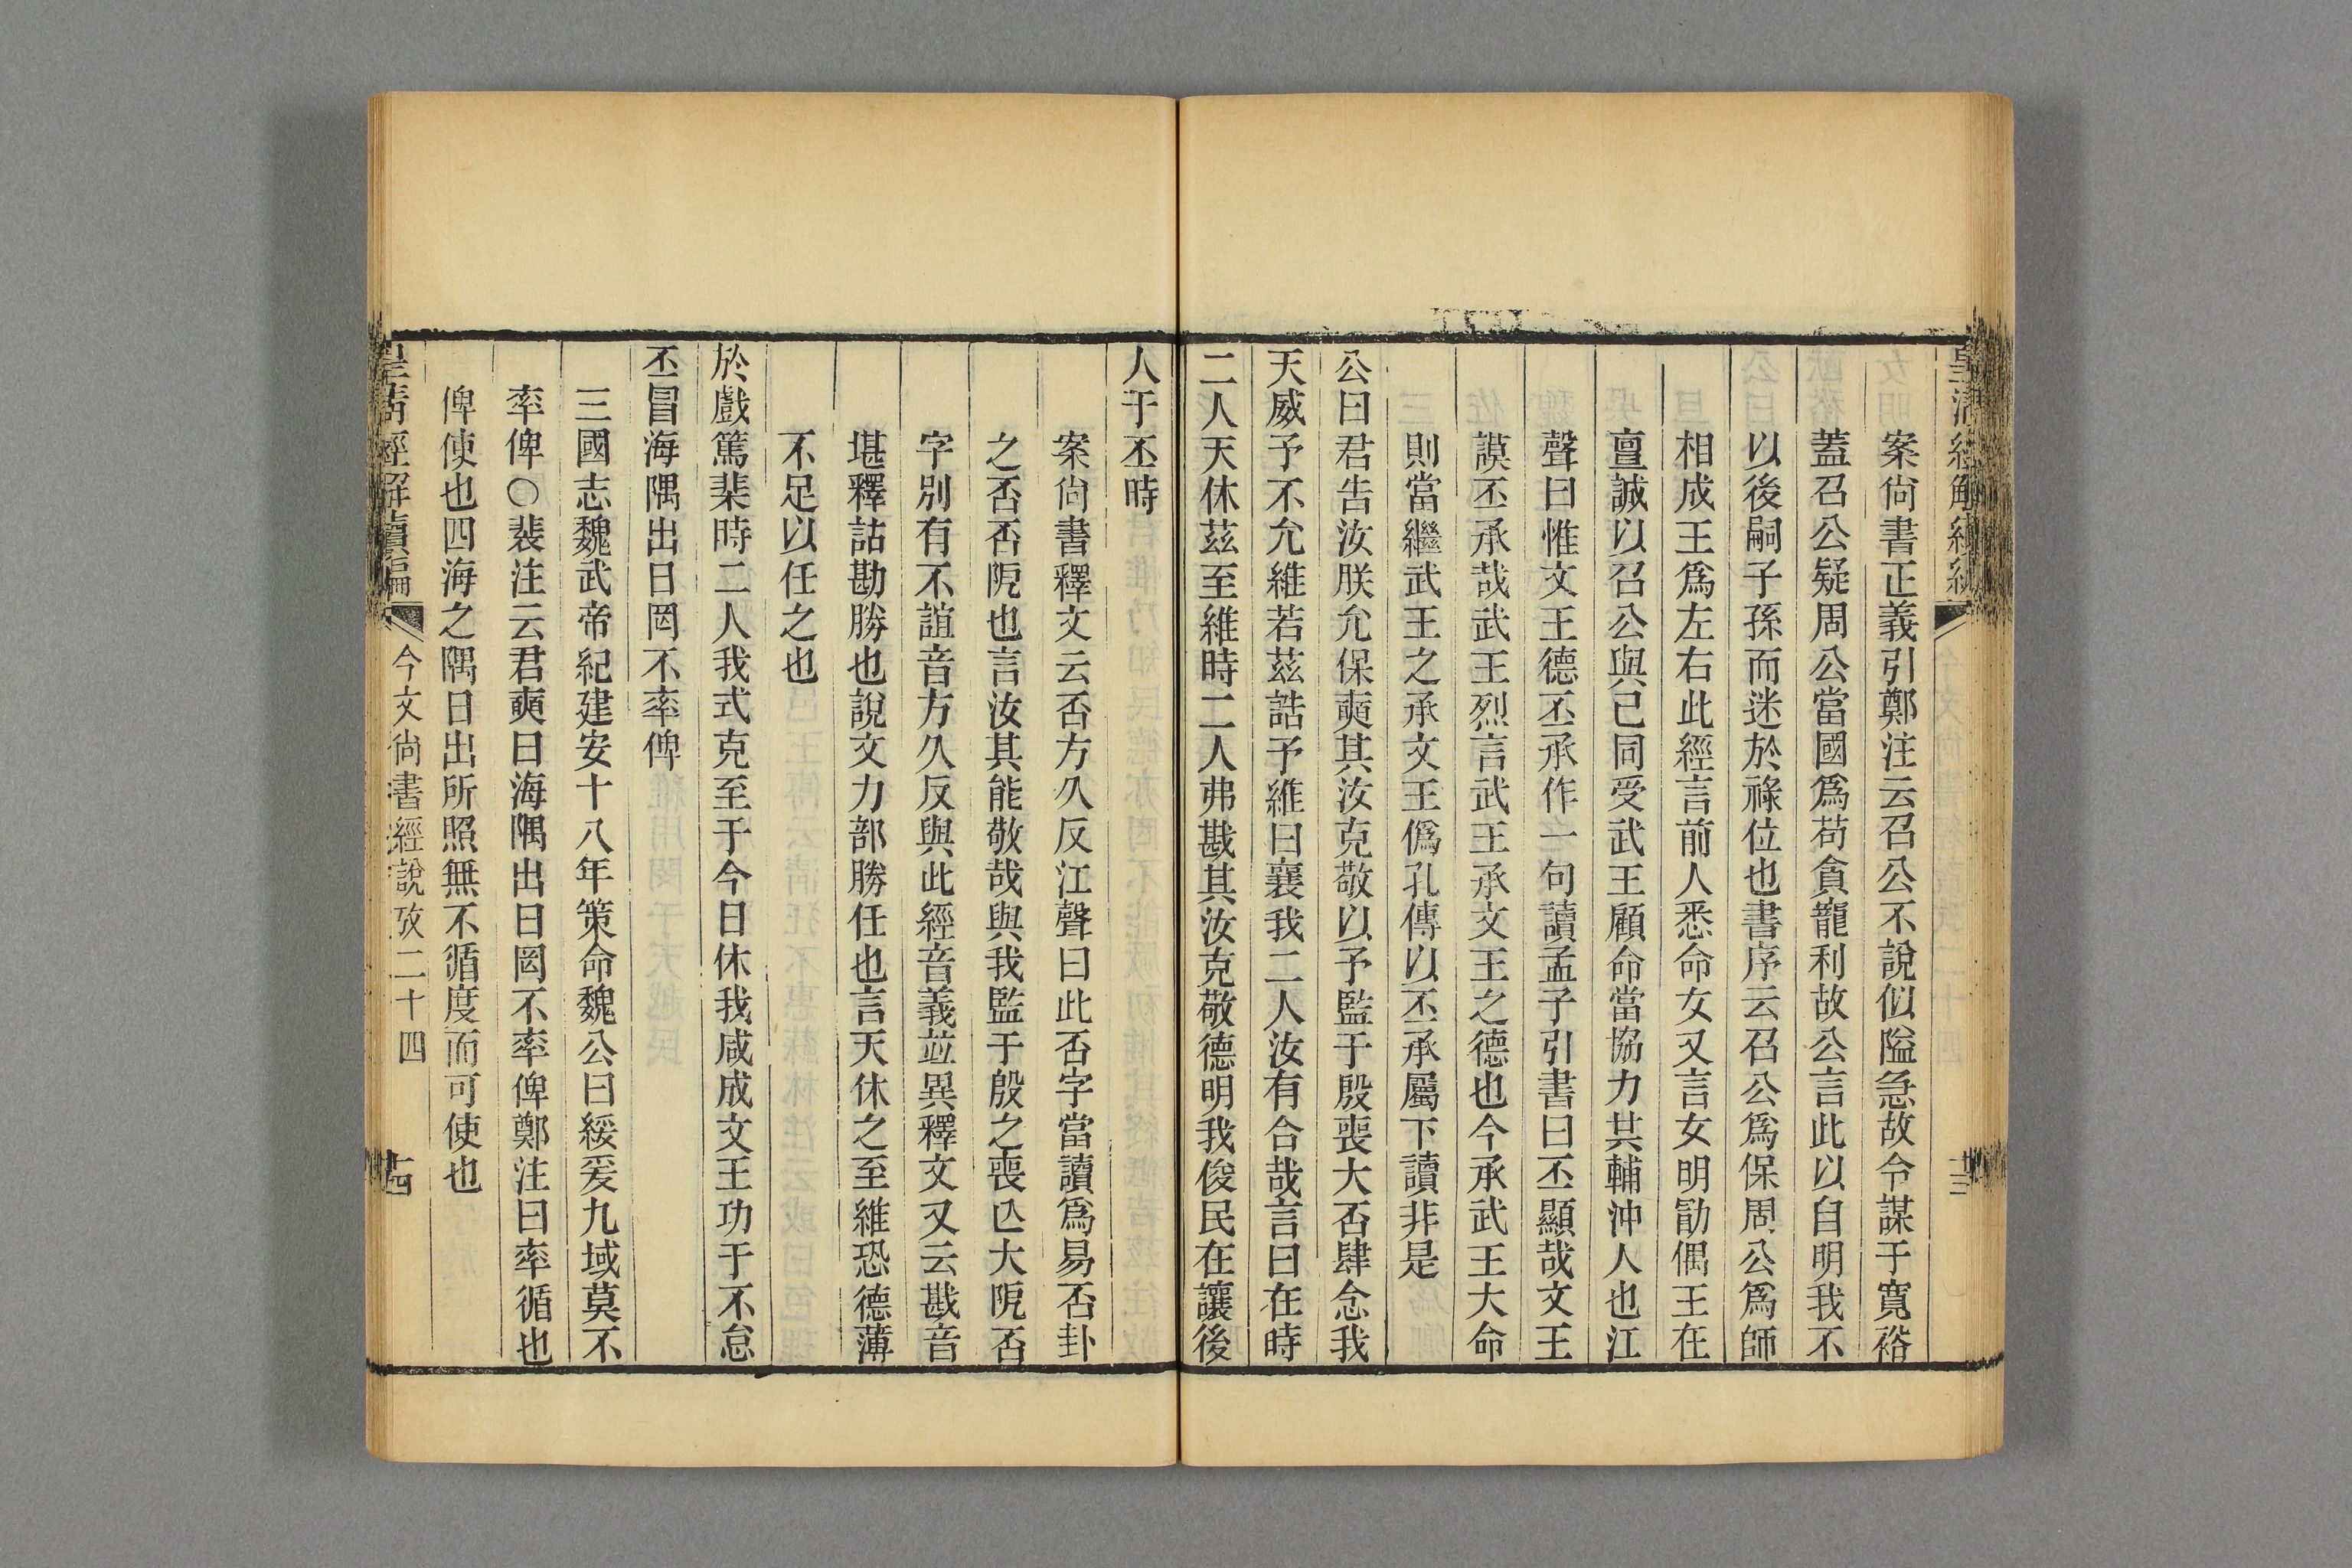 皇清經解續編
三
案尙書正義引鄭注云召公不說似隘急故令謀于寬裕
蓋召公疑周公當國爲苟貪寵利故公言此以自明我不
以後嗣子孫而迷於祿位也書序云召公爲保周公爲師
相成王爲左右此經言前人悉命女又言女明勖偶王在
亶誠以召公與己同受武王顧命當協力共輔沖人也江
聲曰惟文王德丕承作一句讀孟子引書曰丕顯哉文王
謨丕承哉武王烈言武王承文王之德也今承武王大命
則當繼武王之承文王僞孔傳以丕承屬下讀非是
公曰君告汝朕允保奭其汝克敬以予監于殷喪大否肆念我
天威予不允維若茲誥予維曰襄我二人汝有合哉言曰在時
二人天休茲至維時二人弗戡其汝克敬德明我俊民在讓後
人于丕時
案尙書釋文云否方久反江聲曰此否字當讀爲易否卦
之否否阨也言汝其能敬哉與我監于殷之喪亾大阨否
字別有不誼音方久反與此經音義並異釋文又云戡音
堪釋詁勘勝也說文力部勝任也言天休之至維恐德薄
不足以任之也
於戲篤棐時二人我式克至于今日休我咸成文王功于不怠
丕冒海隅出日罔不率俾
三國志魏武帝紀建安十八年策命魏公曰綏爰九域莫不
率俾○裴注云君奭曰海隅出日罔不率俾鄭注曰率循也
俾使也四海之隅日出所照無不循度而可使也
皇淸經解續編
今文尙書經說攷二十四
十四